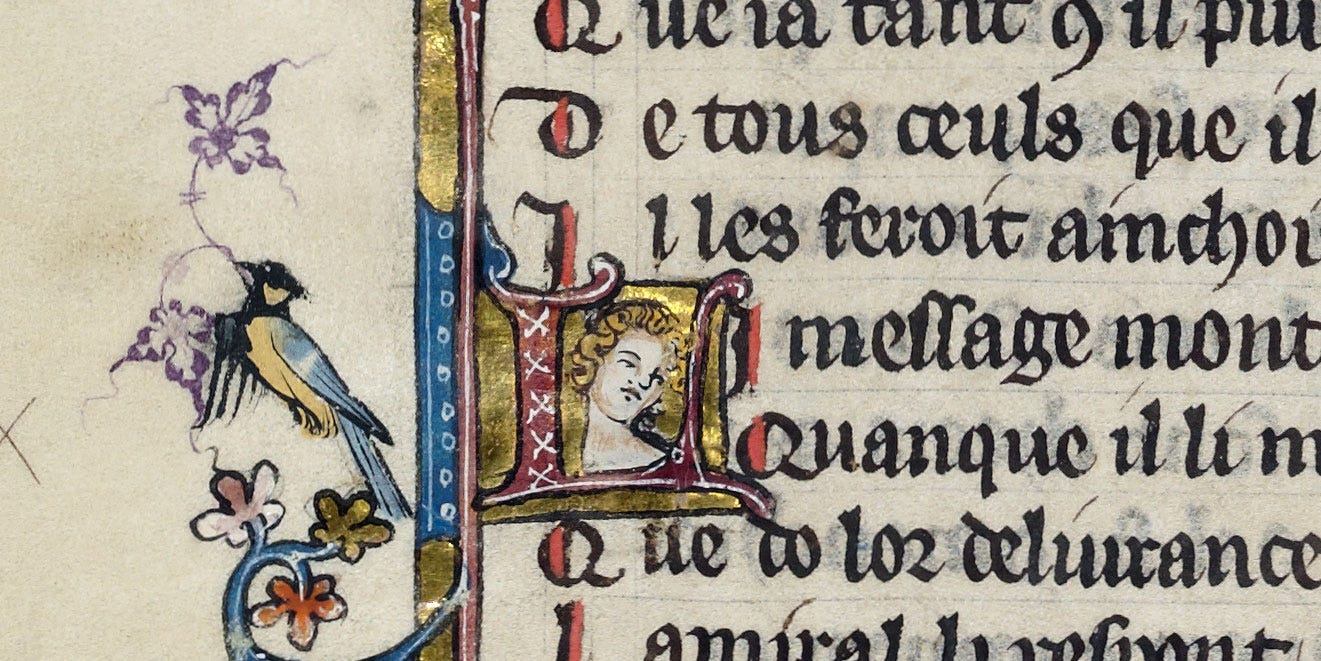 Que ia tant ꝯ il pui
De tous ceuls que il
Il les feroit ainchoi
LI message mont
Quanque il li m
Que do lor deliurance
L amiral li respont